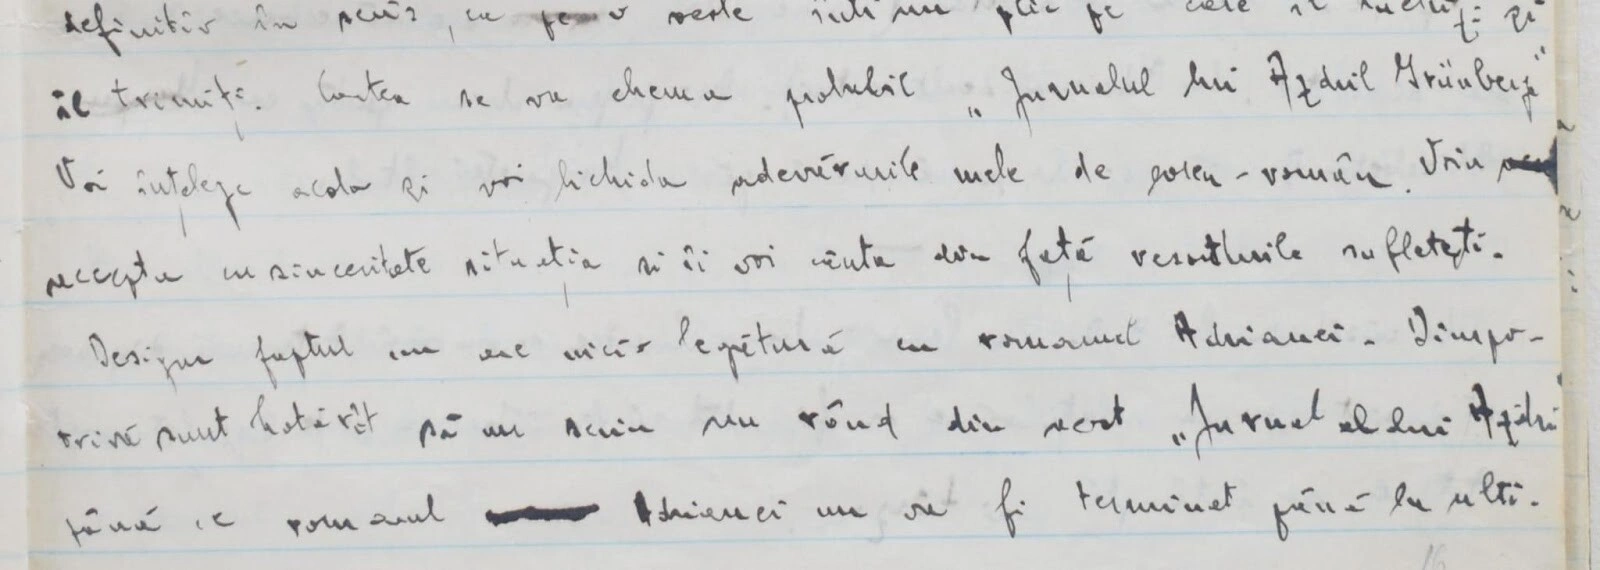 definitiv în scris, ca pe o veste într-un plic pe care îl închizi și
îl trimiți. Cartea se va chema probabil „Jurnalul lui Azdril Grünberg"
Voi înțelege acolo și voi lichida adevărurile mele de evreu-român. Voiu
accepta cu sinceritate situația și îi voi căuta din față resorturile sufletești.
Desigur faptul nu are nicio legătură cu romanul Adrianei. Dimpo-
trivă sunt hotărît să nu scriu un rând din acest „Jurnal al lui Azdri
până ce romanul Adrianei nu va fi terminat până la ulti-